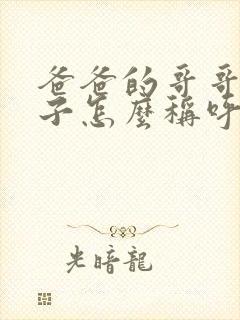 爸爸的哥哥
子怎麼稱呼
光暗龍